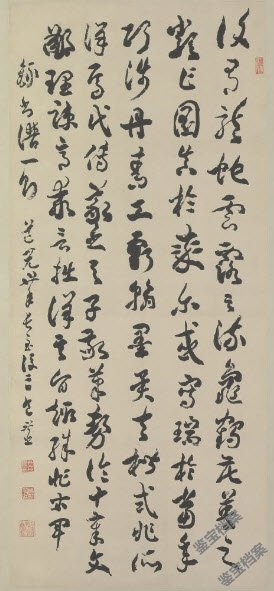 復有龍蛇雲露之流龜鶴花英之
類乍圖真於率爾或寫瑞於當年
巧涉丹青工虧翰墨異夫楷式非所
詳焉代傳羲之与子敬筆勢論十章文
鄙理疎意乖言拙詳其旨趣殊非右軍
錄書譜一節 道光
鉴宝档案
鉴宝档案